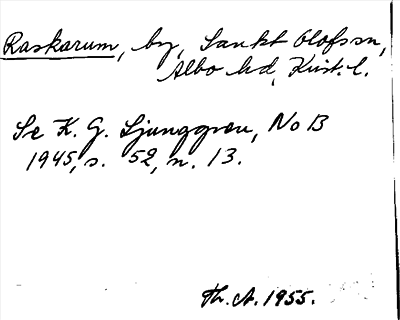 Raskarum, by, Sankt Olofs sn,
Albo hd, Krist. l.
Se K. G. Ljunggren, No B
1945, s. 52, n. 13.
Th. A. 1955.